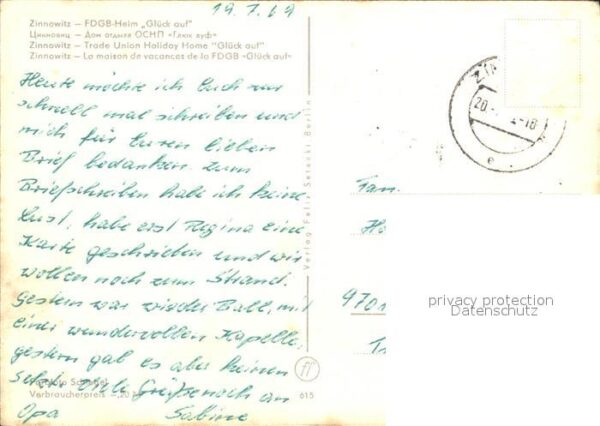 19.7.69
Zinnowitz – FDGB-Heim „Glück auf“
Цинновиц – Дом отдыха ОСНП «Глюк ауф»
Zinnowitz – Trade Union Holiday Home "Glück auf"
Zinnowitz – La maison de vacances de la FDGB «Glück auf»
Heute möchte ich Euch nur
schnell mal schreiben und
mich für Euren lieben
Brief bedanken. Zum
Briefschreiben habe ich keine
Lust, habe erst Regina eine
Karte geschrieben und wir
wollen noch zum Strand.
Gestern war wieder Ball, mit
einer wundervollen Kapelle,
gestern gab es aber keinen
Sekt. Viele Grüße noch an
Opa Sabine
Verbraucherpreis –,20 M
615
Verlag Felix Setecki Berlin
ZIN
20.
-18
e
Fam.
Ho
970
privacy protection
Datenschutz